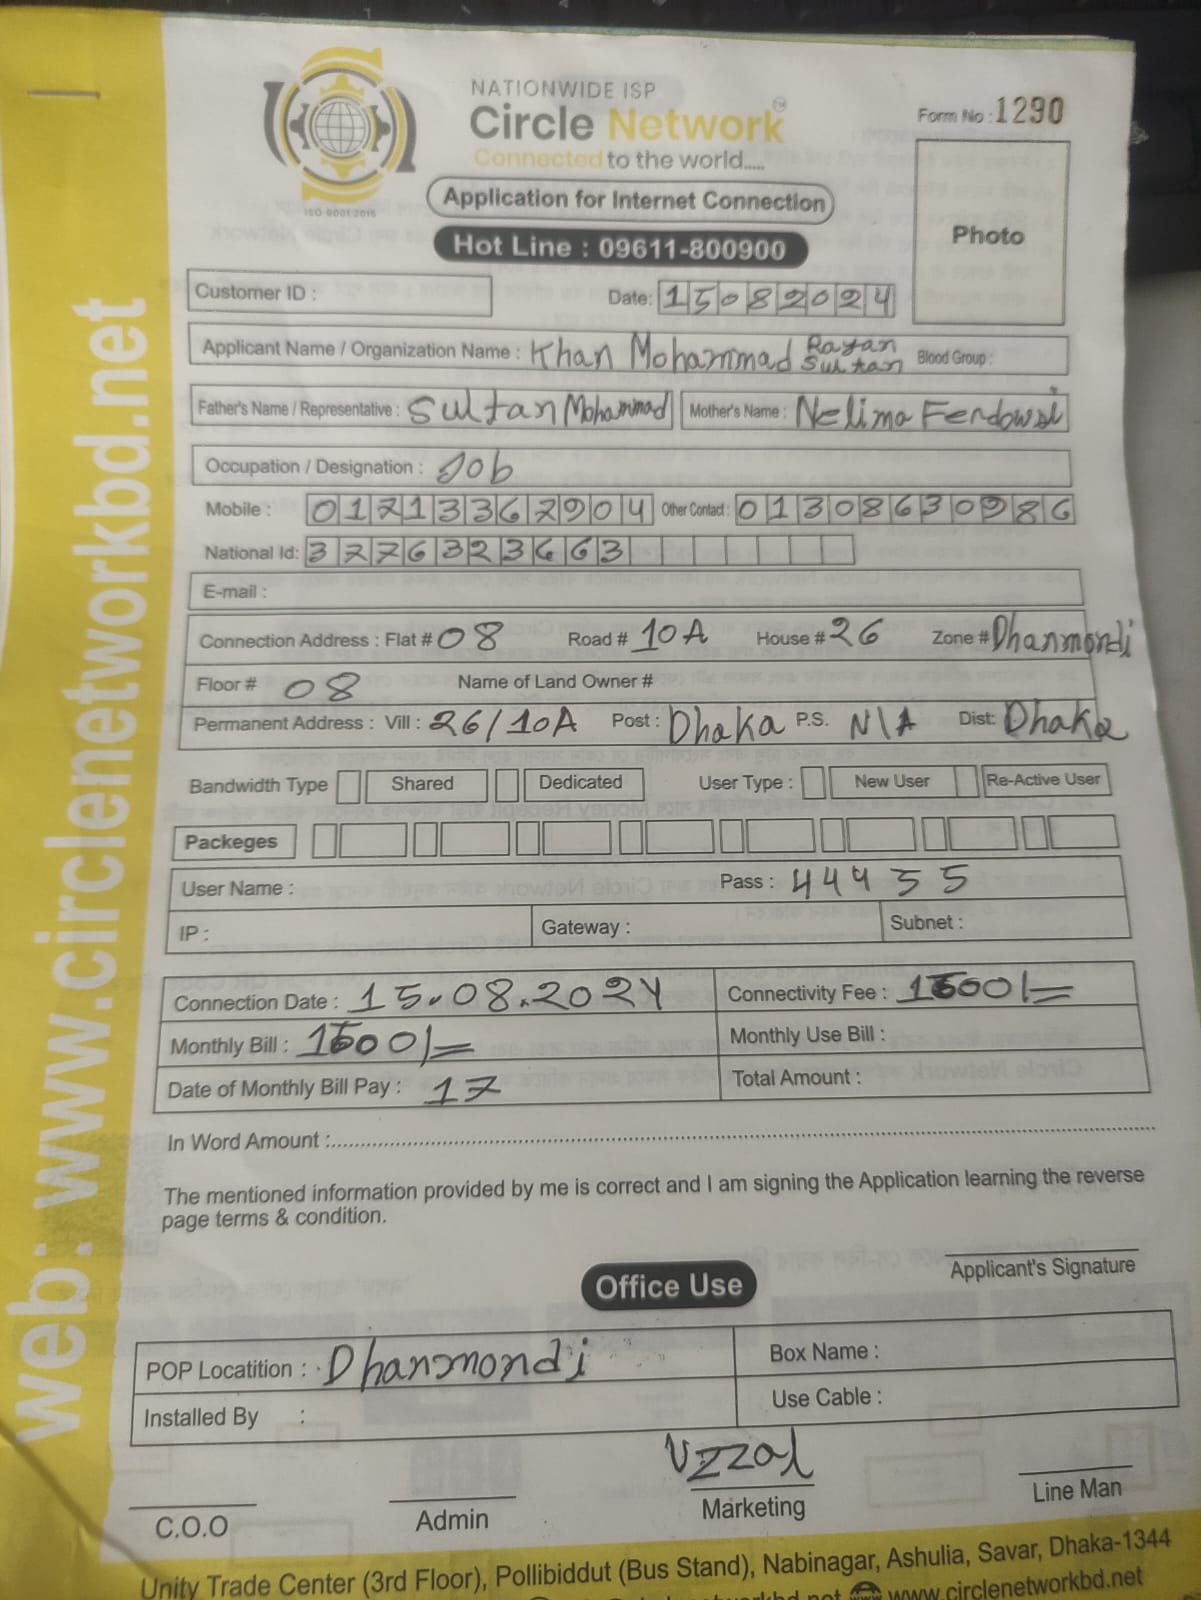 NATIONWIDE ISP
Circle Network
Connected to the world.....
ISO 9001:2015
Form No : 1290
Application for Internet Connection
Hot Line : 09611-800900
Photo
Customer ID :
Date: 15082024
Applicant Name / Organization Name : Khan Mohammad Rayan Sultan Blood Group :
Father's Name / Representative : Sultan Mohammad Mother's Name : Nelima Ferdowsi
Occupation / Designation : Job
Mobile : 01713367904 Other Contact : 01308630986
National Id: 3776323663
E-mail :
Connection Address : Flat # 08 Road # 10A House # 26 Zone # Dhanmondi
Floor # 08 Name of Land Owner #
Permanent Address : Vill : 26/10A Post : Dhaka P.S. N/A Dist: Dhaka
Bandwidth Type Shared Dedicated User Type : New User Re-Active User
Packeges
User Name : Pass : 44455
IP : Gateway : Subnet :
Connection Date : 15.08.2024 Connectivity Fee : 1500/=
Monthly Bill : 1500/= Monthly Use Bill :
Date of Monthly Bill Pay : 17 Total Amount :
In Word Amount :
The mentioned information provided by me is correct and I am signing the Application learning the reverse
page terms & condition.
Applicant's Signature
Office Use
POP Locatition : Dhanmondi Box Name :
Installed By : Use Cable :
Uzzal
C.O.O Admin Marketing Line Man
Unity Trade Center (3rd Floor), Pollibiddut (Bus Stand), Nabinagar, Ashulia, Savar, Dhaka-1344
www.circlenetworkbd.net
web: www.circlenetworkbd.net